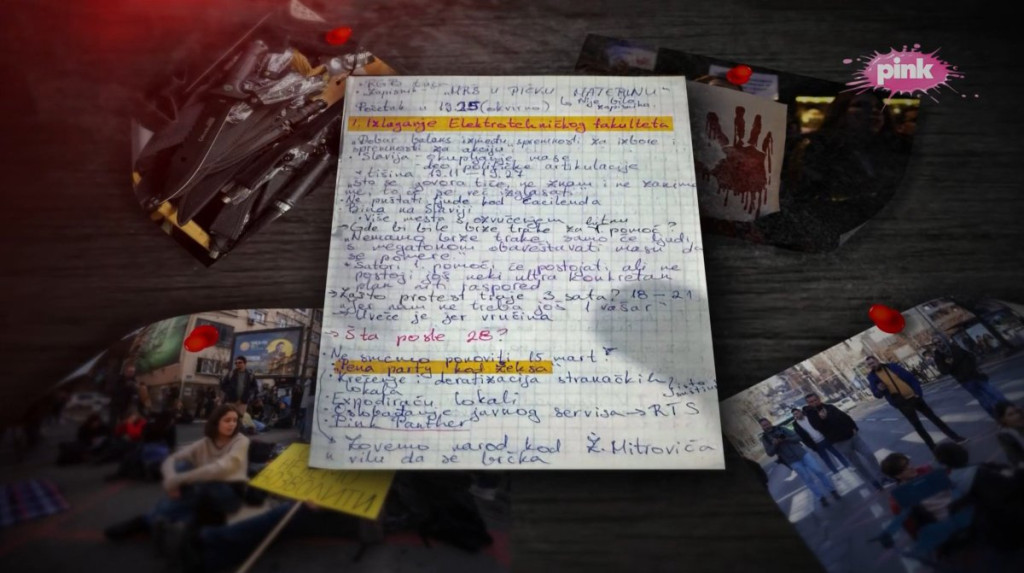 pink
Zapisnik "MRŠ U PIČKU MATERINU"
Početak u 19:25 (okvirno) Nije bilo zapisnika
1. Izlaganje Elektrotehničkog fakulteta
Dobar balans između spremnosti za izbore i
spremnosti za akciju
Slavija - okupljanje mase
deo političke artikulacije
tišina 19.11 - 19.27
Što se govora tiče, ne znam i ne zanima
me, to će se već izglasati
Ne puštati ljude kod Ćacilenda
Bina na Slaviji
Više mesta s ozvučenjem bitnu
→ Gde bi bile brze trake za 1 pomoć?
"Nemamo brze trake, samo će ljudi
s megafonom obaveštavati masu da
se pomere."
Šatori 1 pomoći će postojati, ali ne
postoji još neki ultra konkretan
plan niti raspored
→ Zašto protest traje 3 sata? 18-21
Jer nam ne treba još 1 vašar
Uveče je jer vrućina
→ Šta posle 28?
Ne smemo ponoviti 15 mart!
Pena party kod Željka
Krečenje i deratizacija stranačkih
lokala
Expodiraću lokali
Oslobađanje javnog servisa → RTS
Pink Panther
Zovemo narod kod Ž. Mitrovića
u vilu da se brčka